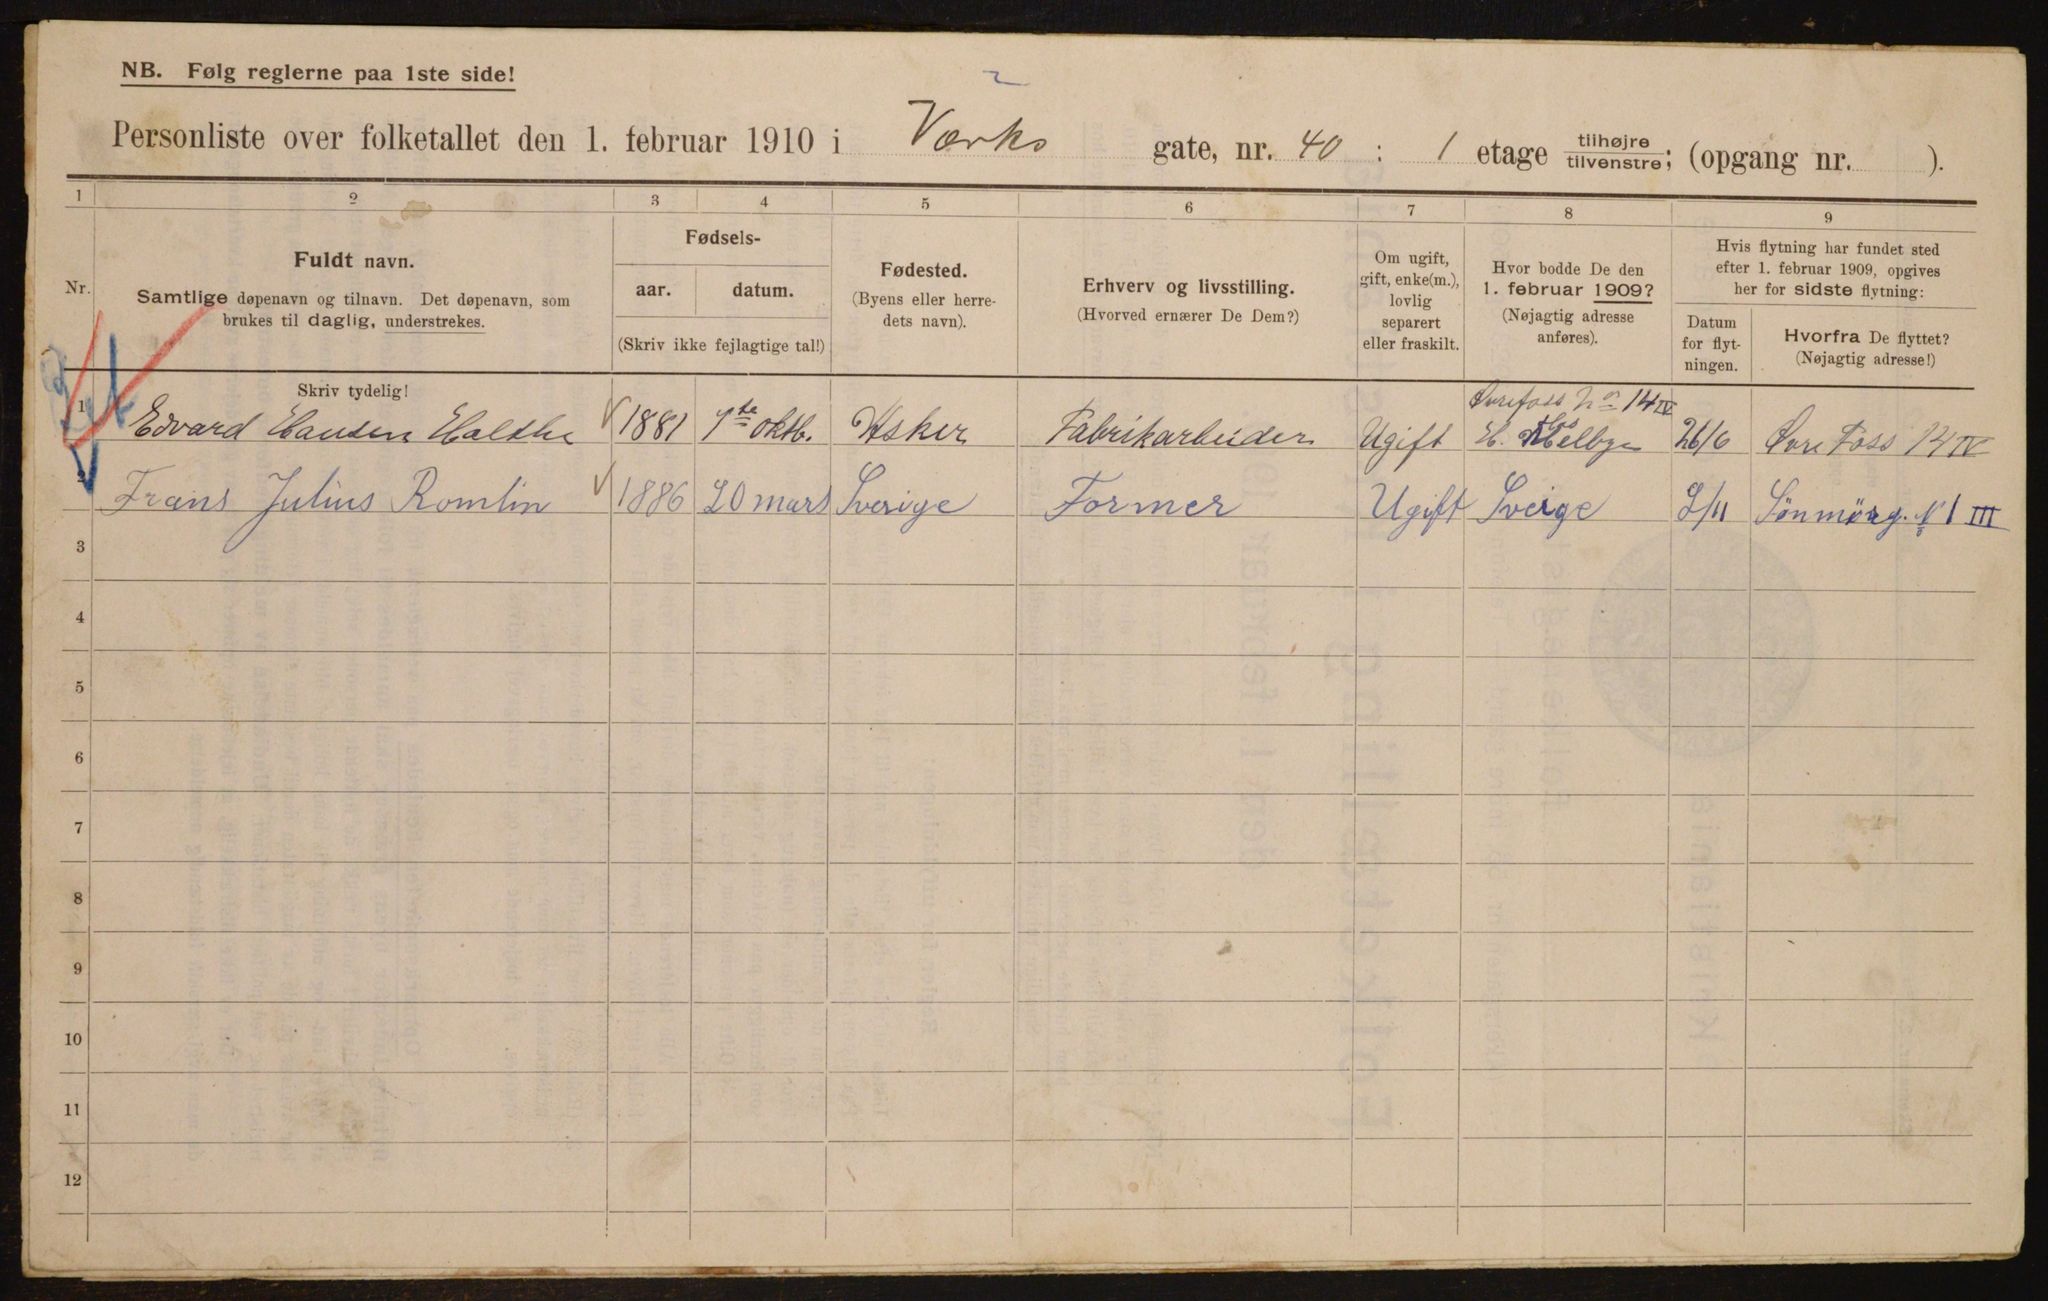 NB. Følg reglerne paa 1ste side!
2
Personliste over folketallet den 1. februar 1910 i Værks gate, nr. 40 : 1 etage tilhøjre/tilvenstre; (opgang nr. ).
1 2 3 4 5 6 7 8 9
Nr.
Fuldt navn.
Samtlige døpenavn og tilnavn. Det døpenavn, som
brukes til daglig, understrekes.
Skriv tydelig!
Fødsels-
aar. datum.
(Skriv ikke fejlagtige tal!)
Fødested.
(Byens eller herre-
dets navn).
Erhverv og livsstilling.
(Hvorved ernærer De Dem?)
Om ugift,
gift, enke(m.),
lovlig
separert
eller fraskilt.
Hvor bodde De den
1. februar 1909?
(Nøjagtig adresse
anføres).
Hvis flytning har fundet sted
efter 1. februar 1909, opgives
her for sidste flytning:
Datum
for flyt-
ningen.
Hvorfra De flyttet?
(Nøjagtig adresse!)
Øvrefoss No 14 IV
1 Edvard Hansen 1881 1ste oktb. Asker Fabrikarbeider Ugift H. Melbye 26/6 Øvre Foss 14 IV
hos
2 Frans Julius Romlin 1886 20 mars Sverige Former Ugift Sverge 2/11 Sønmörg. N 1 III
3
4
5
6
7
8
9
10
11
12